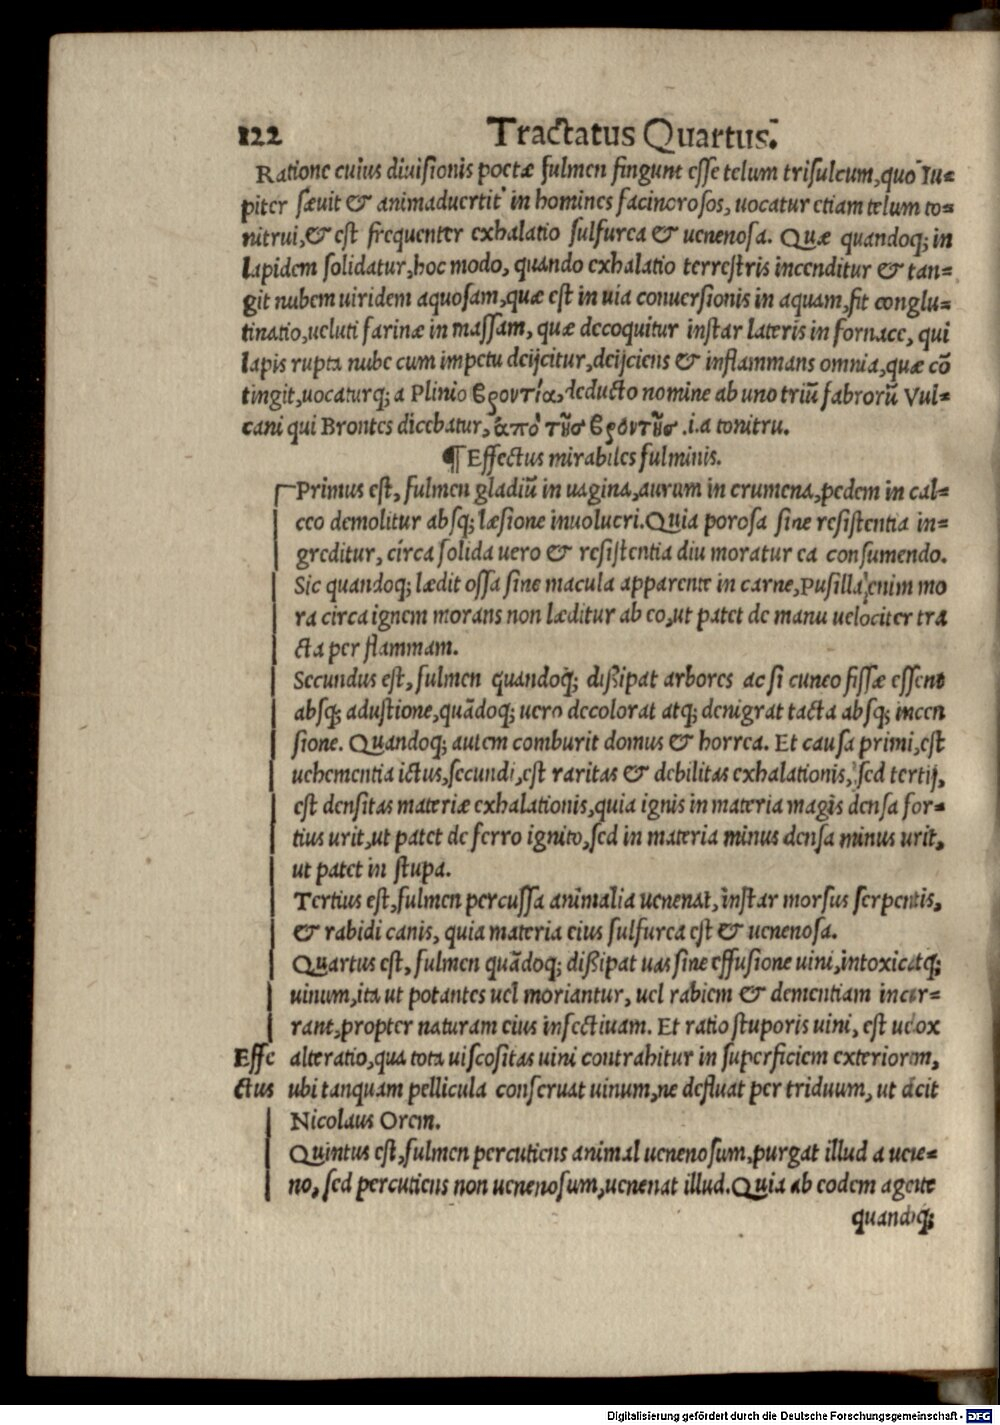 122 Tractatus Quartus.
Ratione cuius diuisionis poetæ fulmen fingunt esse telum trisulcum, quo Iu=
piter sæuit & animaduertit in homines facinorosos, uocatur etiam telum to=
nitrui, & est frequenter exhalatio sulfurea & uenenosa. Quæ quandoq; in
lapidem solidatur, hoc modo, quando exhalatio terrestris incenditur & tan=
git nubem uiridem aquosam, quæ est in uia conuersionis in aquam, fit conglu=
tinatio, ueluti farinæ in massam, quæ decoquitur instar lateris in fornace, qui
lapis rupta nube cum impetu deijcitur, deijciens & inflammans omnia, quæ cō
tingit, uocaturq; a Plinio βροντία, deducto nomine ab uno triū fabrorū Vul=
cani qui Brontes dicebatur, ἀπὸ τῦσ βρόντῦσ .i.a tonitru.
¶ Effectus mirabiles fulminis.
Primus est, fulmen gladiū in uagina, aurum in crumena, pedem in cal=
ceo demolitur absq; læsione inuolucri. Quia porosa sine resistentia in=
greditur, circa solida uero & resistentia diu moratur ea consumendo.
Sic quandoq; lædit ossa sine macula apparente in carne, Pusilla enim mo
ra circa ignem morans non læditur ab eo, ut patet de manu uelociter tra
cta per flammam.
Secundus est, fulmen quandoq; dißipat arbores ac si cuneo fissæ essent
absq; adustione, quādoq; uero decolorat atq; denigrat tacta absq; incen
sione. Quandoq; autem comburit domus & horrea. Et causa primi, est
uehementia ictus, secundi, est raritas & debilitas exhalationis, sed tertij,
est densitas materiæ exhalationis, quia ignis in materia magis densa for=
tius urit, ut patet de ferro ignito, sed in materia minus densa minus urit,
ut patet in stupa.
Tertius est, fulmen percussa animalia uenenat, instar morsus serpentis,
& rabidi canis, quia materia eius sulfurea est & uenenosa.
Quartus est, fulmen quādoq; dißipat uas sine effusione uini, intoxicatq;
uinum, ita ut potantes uel moriantur, uel rabiem & dementiam incur=
rant, propter naturam eius infectiuam. Et ratio stuporis uini, est uelox
Effe alteratio, qua tota uiscositas uini contrahitur in superficiem exteriorem,
ctus ubi tanquam pellicula conseruat uinum, ne defluat per triduum, ut dicit
Nicolaus Orem.
Quintus est, fulmen percutiens animal uenenosum, purgat illud a uene=
no, sed percutiens non uenenosum, uenenat illud. Quia ab eodem agente
quandoq;
Digitalisierung gefördert durch die Deutsche Forschungsgemeinschaft - DFG